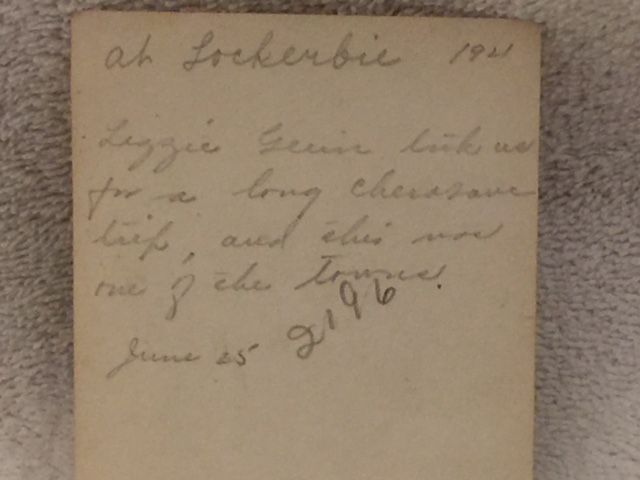 at Lockerbie 1921
Lizzie took us
for a long
trip, and this was
one of the towns.
2196
June 25